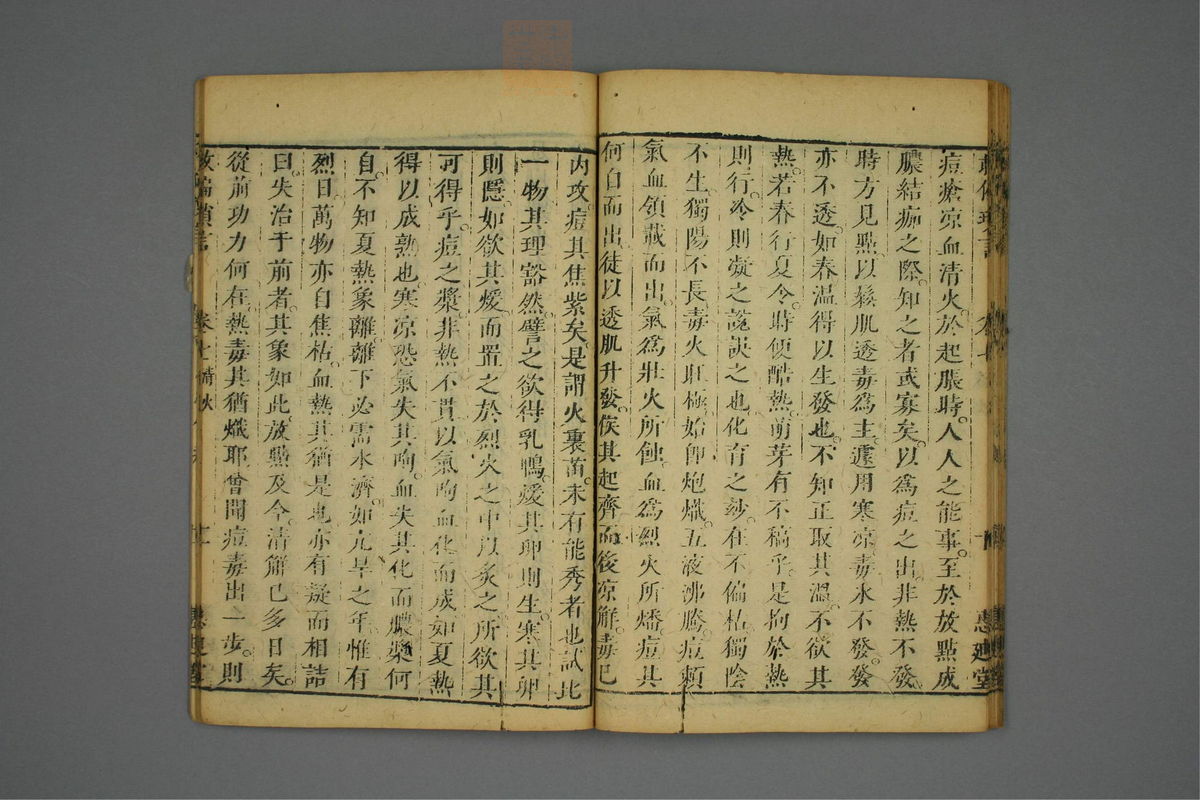 痘瘡凉血清火於起脹時人人之能事至於放點成
膿結痂之際知之者或寡矣以爲痘之出非熱不發
時方見點以鬆肌透毒爲主遽用寒凉毒氷不發發
亦不透如春温得以生發也不知正取其温不欲其
熱若春行夏令時便酷熱萌芽有不稿乎是拘於熱
則行冷則凝之說誤之也化育之玅在不偏枯獨陰
不生獨陽不長毒火旺極始卽炮熾五液沸騰痘頼
氣血領載而出氣爲壯火所蝕血爲烈火所燔痘具
何自而出徒以透肌升發俟其起齊而後凉解毒已
内攻痘其焦紫矣是謂火裏苗未有能秀者也試比
一物其理豁然譬之欲得乳鴨煖其卵則生寒其卵
則隱如欲其煖而置之於烈火之中以炙之所欲其
可得乎痘之漿非熱不貫以氣呴血化而成如夏熱
得以成熟也寒凉恐氣失其呴血失其化而膿漿何
自不知夏熱象離離下必需水濟如亢旱之年惟有
烈日萬物亦自焦枯血熱其猶是也亦有疑而相詰
曰失治于前者其象如此放點及今清解已多日矣
從前功力何在熱毒其猶熾耶曾聞痘毒出一步則
救偏瑣言
卷七備
十一
惠廸堂